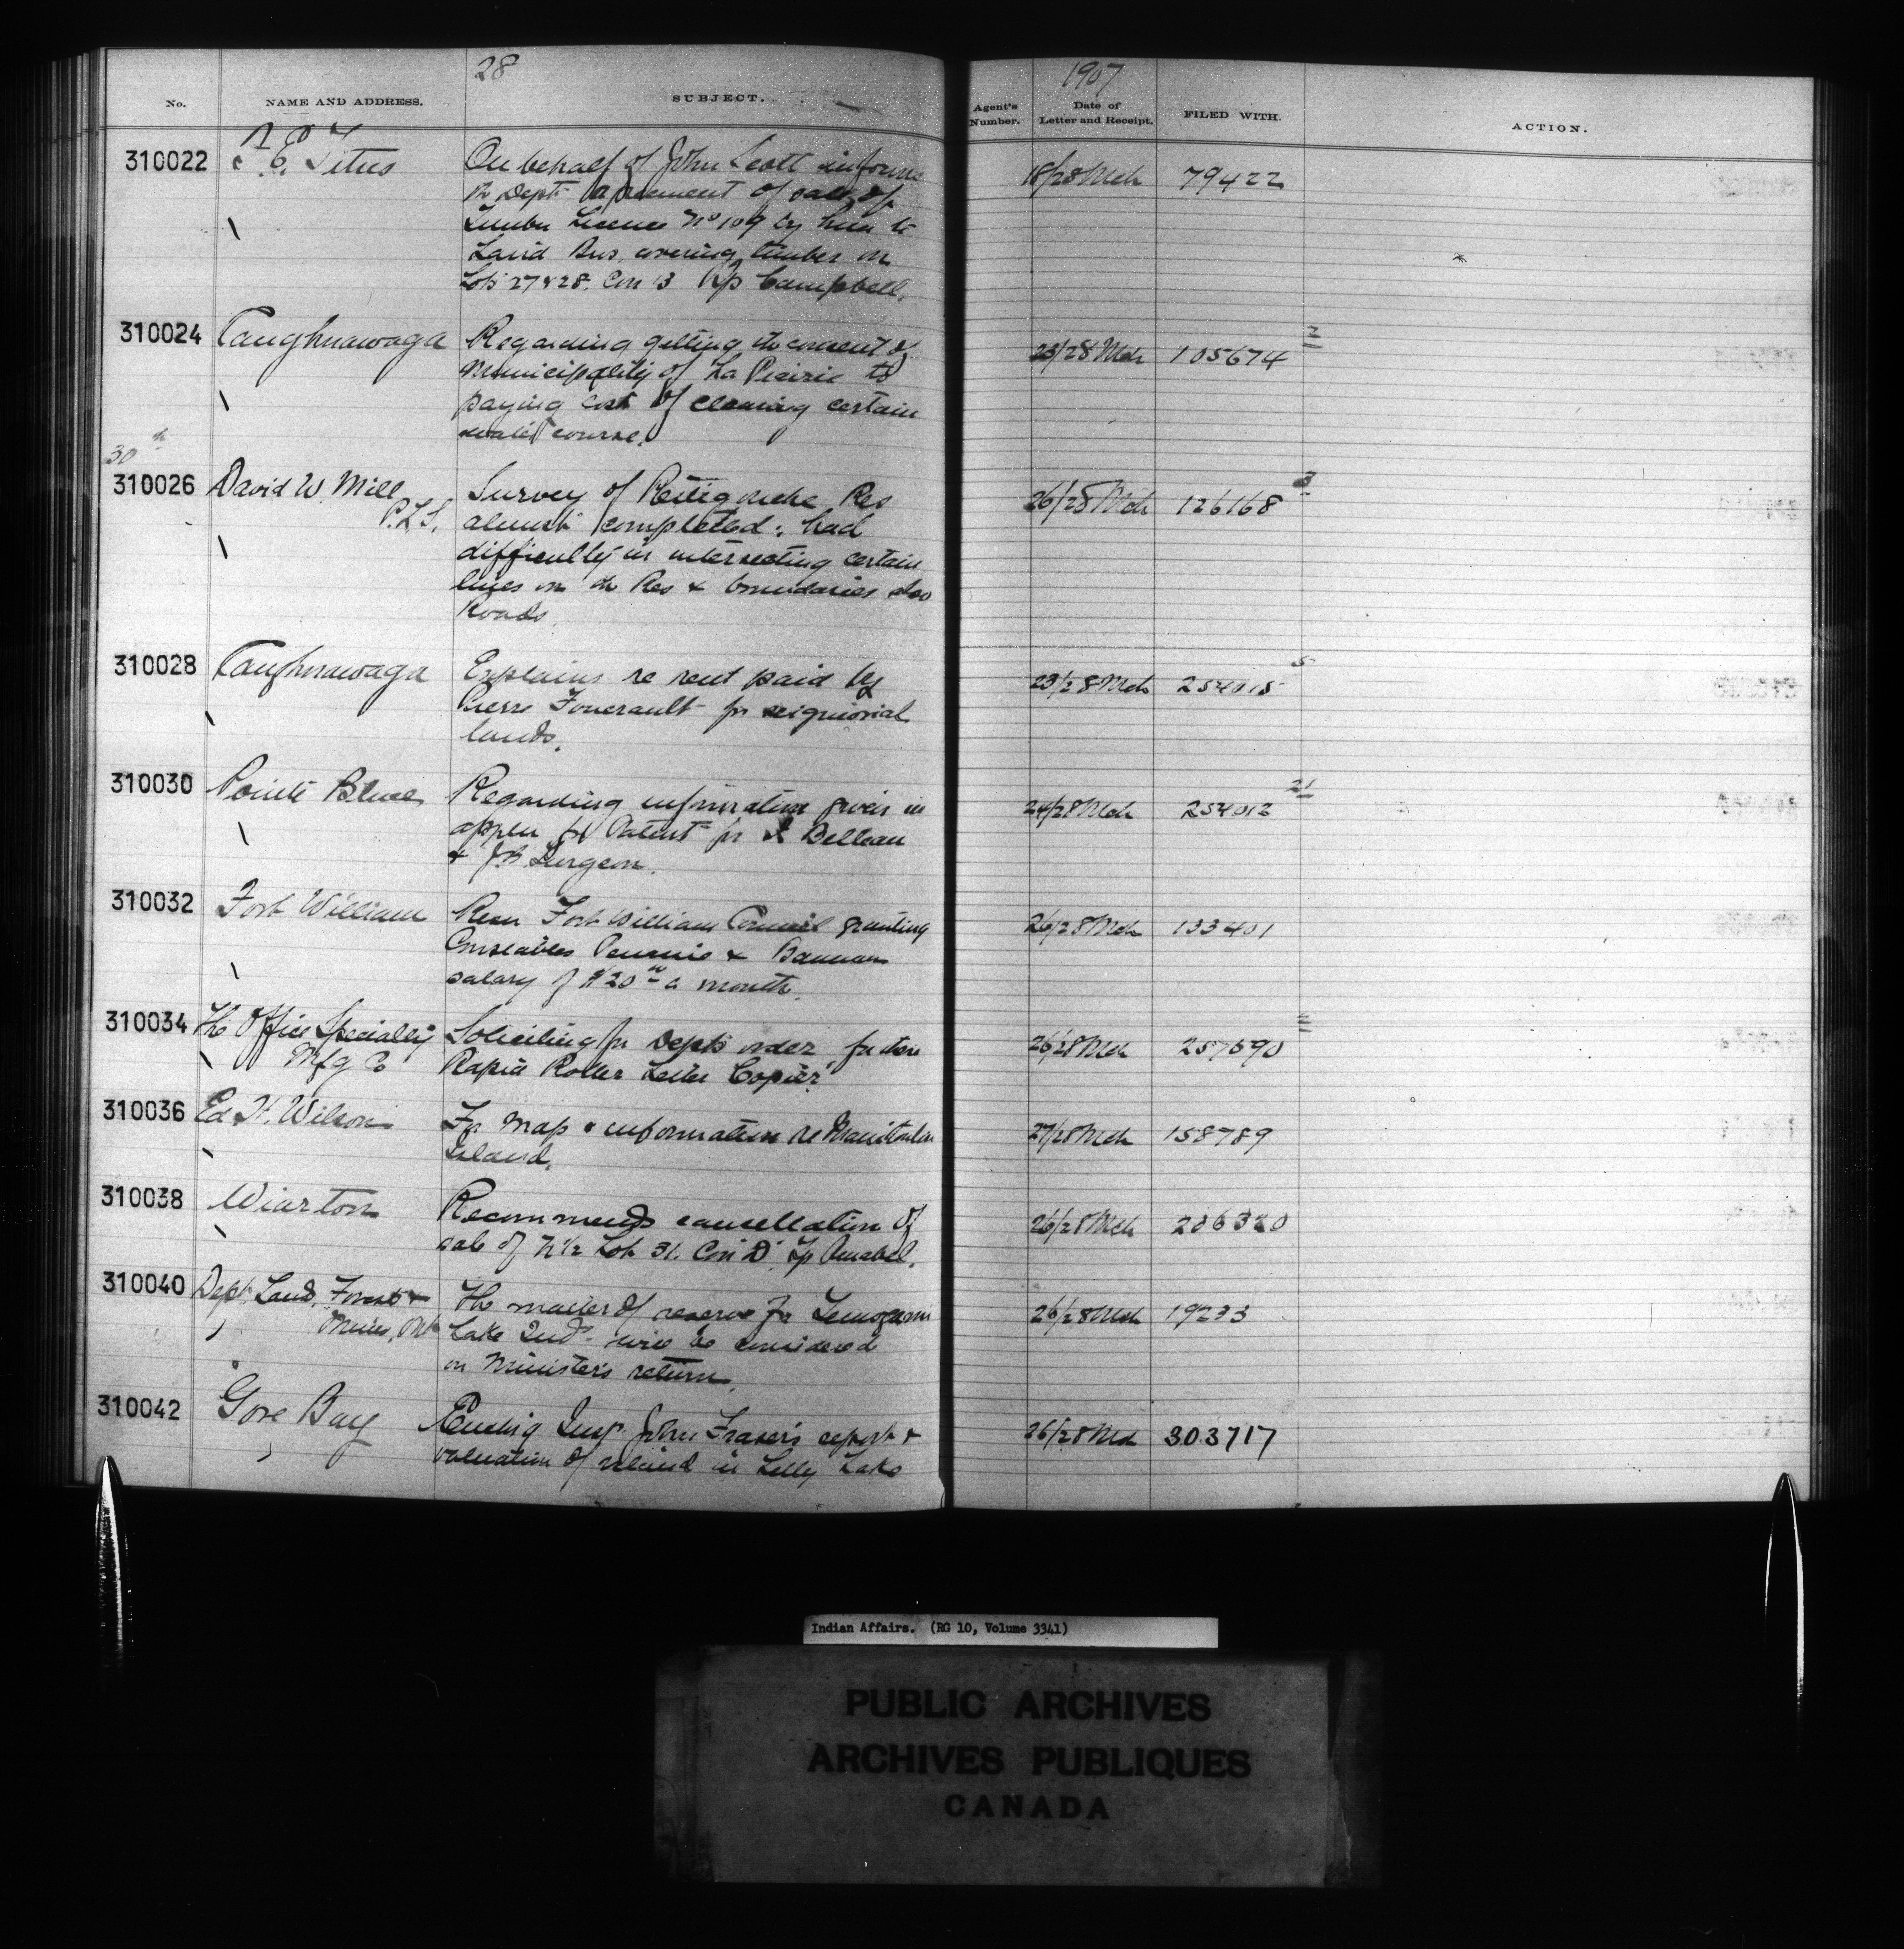 28
1907
No. NAME AND ADDRESS. SUBJECT. Agent's Number. Date of Letter and Receipt. FILED WITH. ACTION.
310022 Titus On behalf of John Scott informs 18/28 Mch 79422
the Dept agreement of sale of
Timber Licence No 109 by him to
Laird Bros. covering timber on
Lots 27 & 28. Con 13 Tp Campbell.
310024 Caughnawaga Regarding getting the consent of 23/28 Mch 105674 2
Municipality of La Prairie to
paying cost of cleaning certain
water course.
30th
310026 David W. Mill Survey of Restigouche Res 26/28 Mch 126168 3
P.L.S. almost completed: had
difficulty in intersecting certain
lines on the Res & boundaries also
Roads.
310028 Caughnawaga Explains re rent paid by 23/28 Mch 254015 5
Pierre Foucrault for seigniorial
lands.
310030 Pointe Bleue Regarding information given in 24/28 Mch 254012 21
appln for Patent for Belleau
& J.B. Turgeon.
310032 Fort William Resn Fort William Council granting 26/28 Mch 133401
Constables & Bannon
salary of $20 00 a month.
310034 The Office Specialty Soliciting for Depts order for their 26/28 Mch 257690
Mfg Co Rapid Roller Letter Copier.
310036 Ed H. Wilson For map & information re Manitoulin 27/28 Mch 158789
Island.
310038 Wiarton Recommends cancellation of 26/28 Mch
sale of N 1/2 Lot 31. Con D. Tp Amabel.
310040 Dept. Land, Forests & The matter of reserve for Temogami 26/28 Mch 19233
Mines, Ont Lake Inds. will be considered
on Minister's return.
310042 Gore Bay Encl'g Insp. John Fraser's report & 26/28 Mch 303717
valuation of island in Lilly Lake
Indian Affairs. (RG 10, Volume 3341)
PUBLIC ARCHIVES
ARCHIVES PUBLIQUES
CANADA